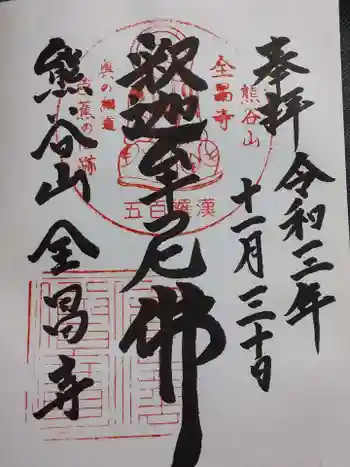 奉拝
令和三年
十一月三十日
釈迦牟尼佛
熊谷山全昌寺
熊谷山
全昌寺
奥の細道
芭蕉の
五百羅漢